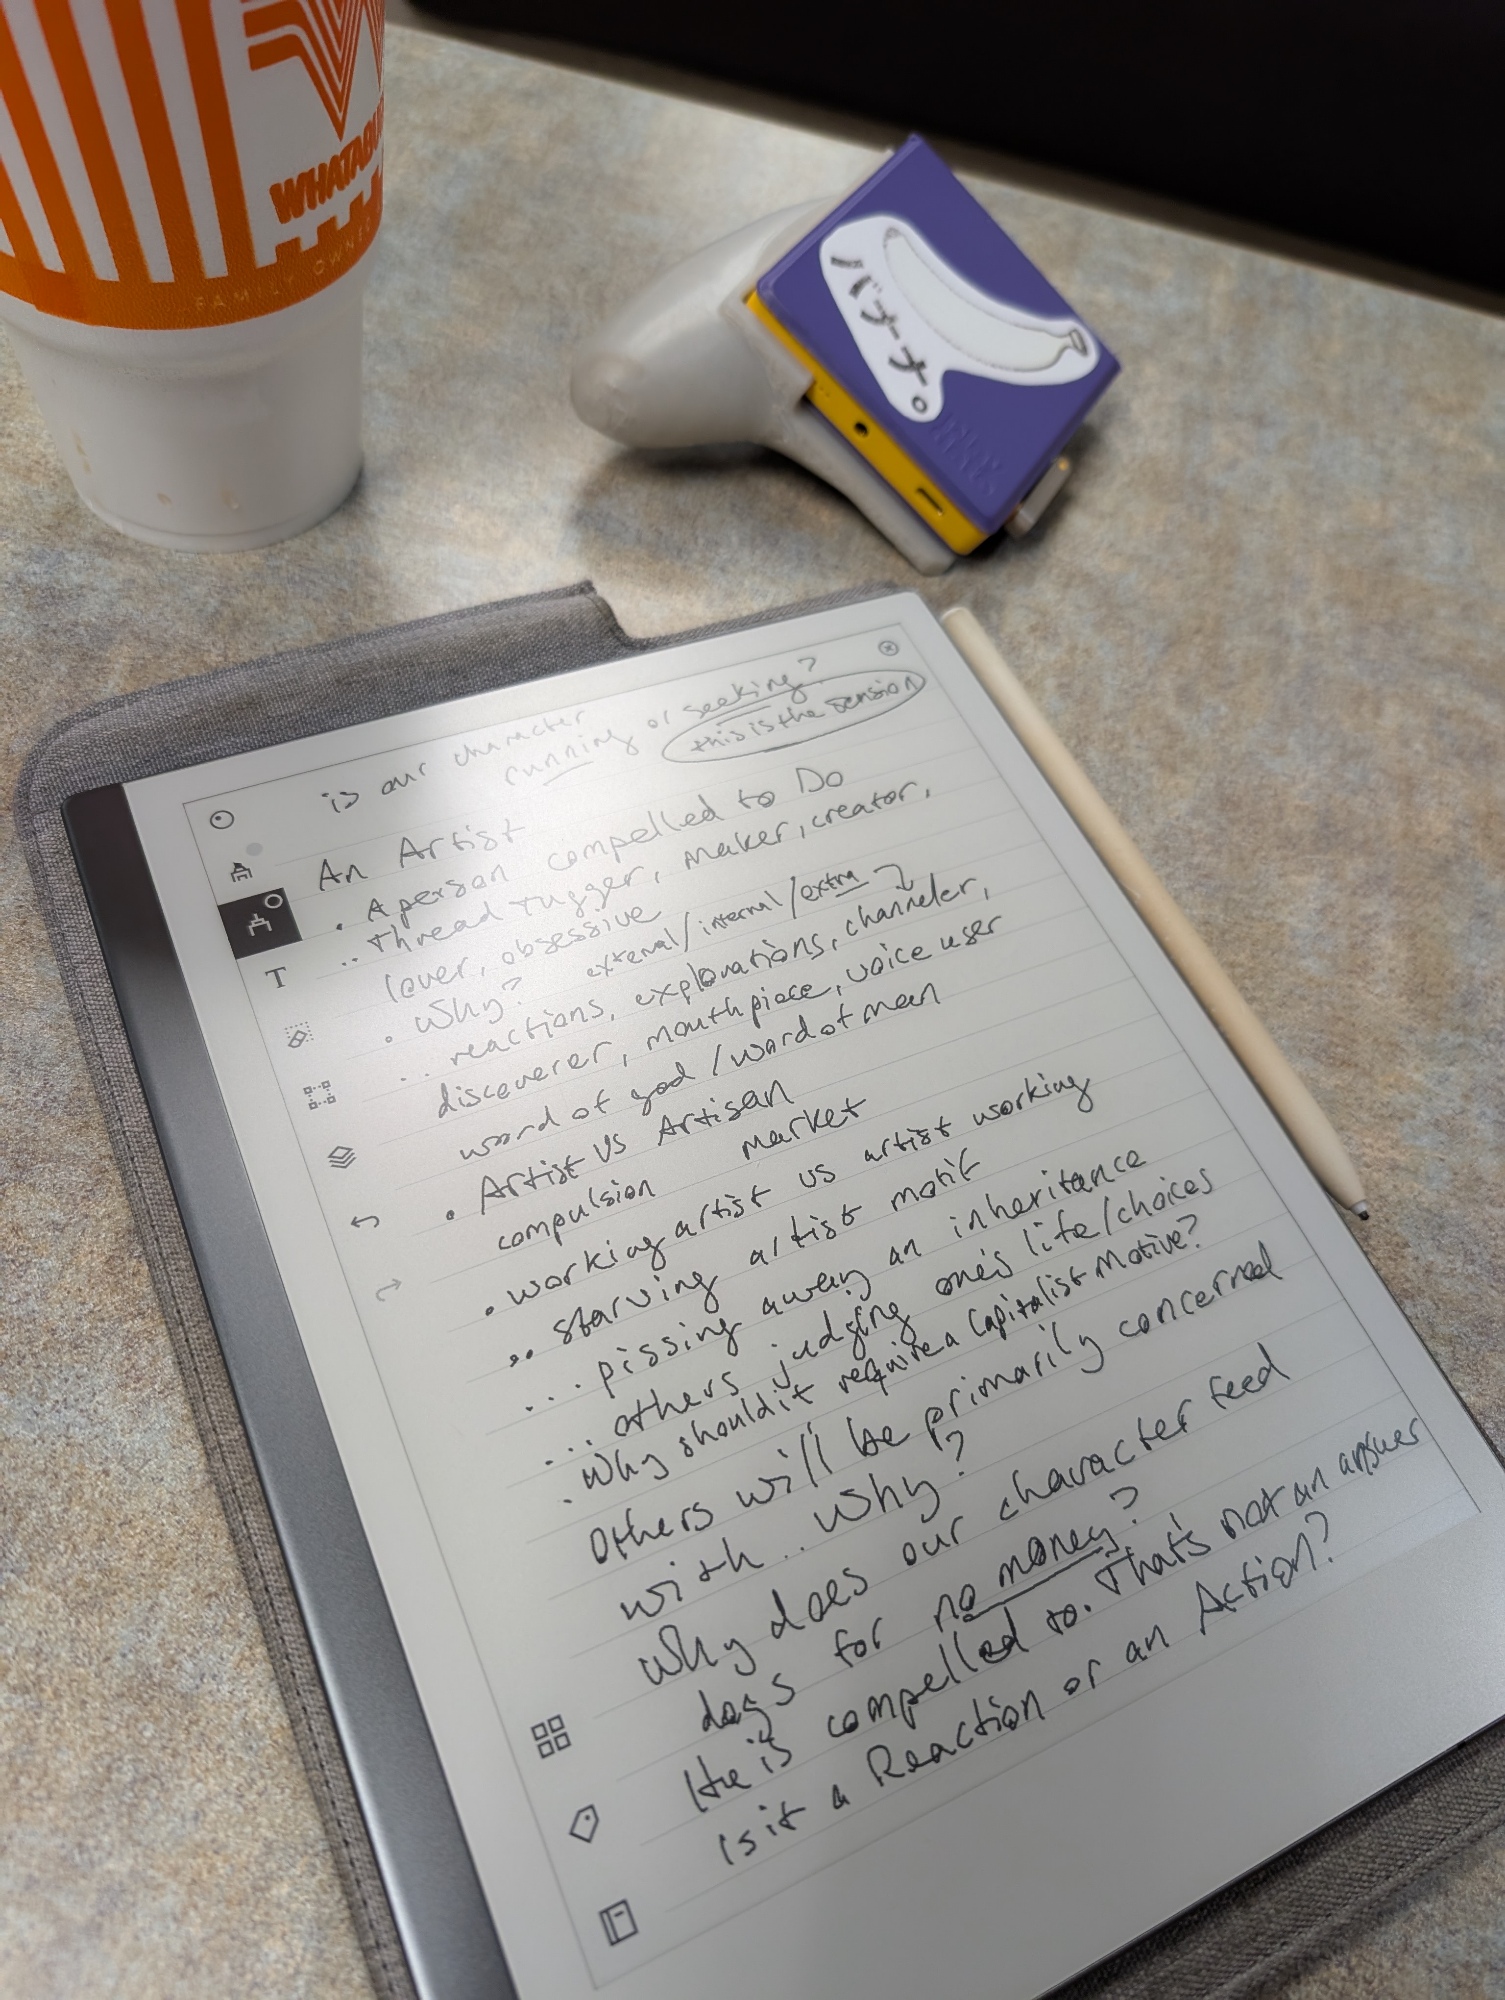 WHATABU
FAMILY OWNE
バナーナ。
is our character
running or seeking?
this is the tension
An Artist
. A person compelled to Do
.. thread tugger, maker, creator,
lover, obsessive
. Why? external/internal/extra
.. reactions, explorations, channeler,
discoverer, mouthpiece, voice user
word of god / word of man
. Artist vs Artisan
compulsion market
. working artist vs artist working
.. starving artist motif
... pissing away an inheritance
... others judging one's life/choices
. Why should it require a Capitalist Motive?
Others will be primarily concerned
with.. Why?
Why does our character feed
dogs for no money?
He is compelled to. That's not an answer
is it a Reaction or an Action?
T